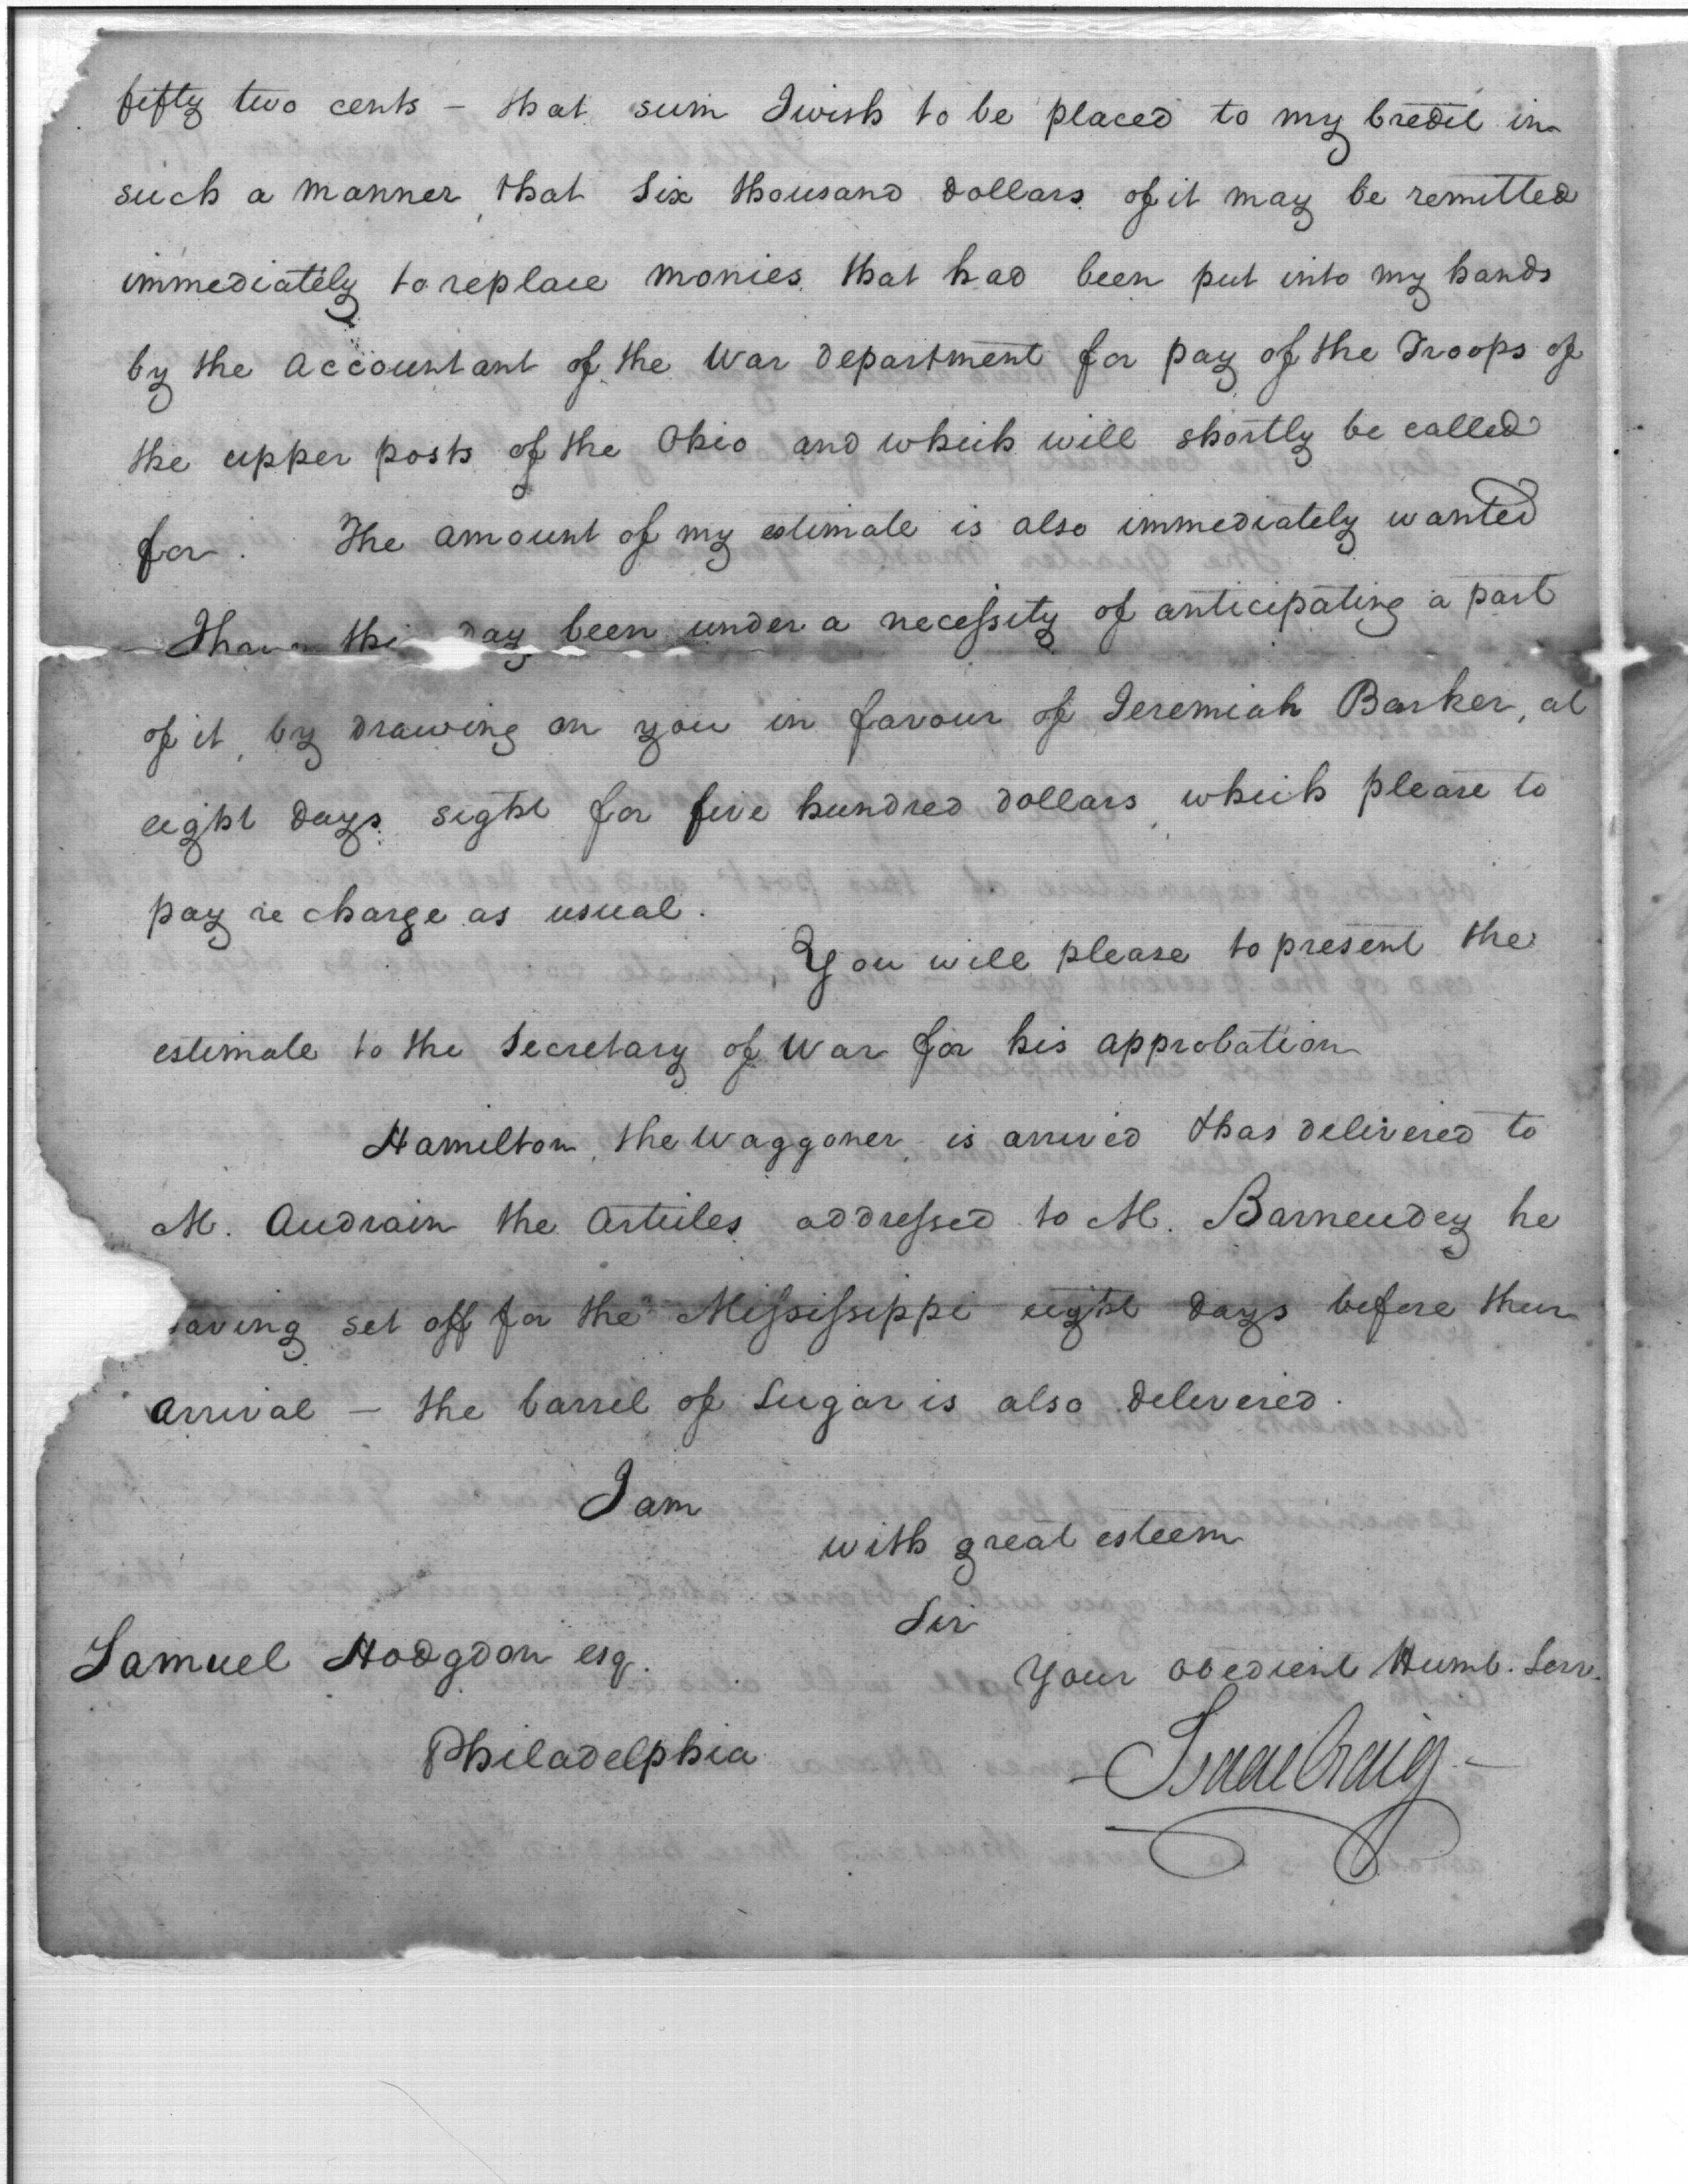 fifty two cents – that sum I wish to be placed to my Credit in
such a manner, that Six thousand dollars of it may be remitted
immediately to replace monies that had been put into my hands
by the Accountant of the War department for pay of the Troops of
the upper posts of the Ohio and which will shortly be called
for. The amount of my estimate is also immediately wanted
I have this day been under a necessity of anticipating a part
of it, by drawing on you in favour of Jeremiah Barker, at
eight days sight for five hundred dollars, which please to
pay & charge as usual.
You will please to present the
estimate to the Secretary of War for his approbation
Hamilton, the Waggoner, is arrived & has delivered to
M. Audrain the Articles addressed to M. Barneudey he
having set off for the Mississippi eight days before their
arrival – the barrel of Sugar is also delivered.
I am
with great esteem
Sir
Your Obedient Humb. Serv.
Samuel Hodgdon esq.
Philadelphia
Isaac Craig